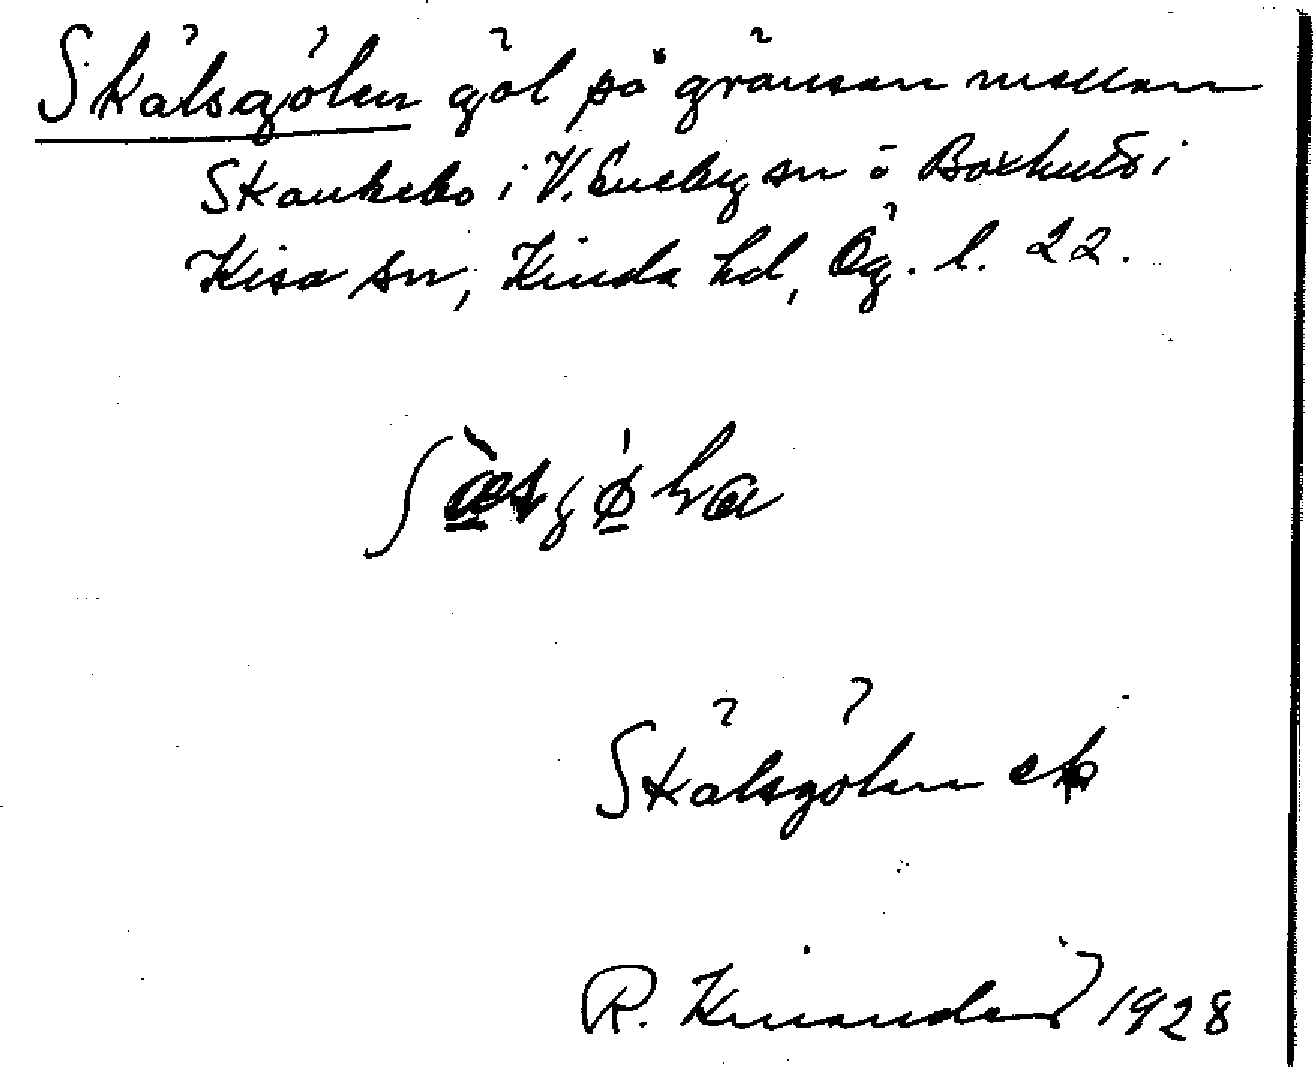 Skälsgölen göl på gränsen mellan
Skankebo i V. Eneby sn o Boxhult i
Kisa sn, Kinda hd, Ög. l. 22.
Skälsgölen ek
R. Kinander 1928